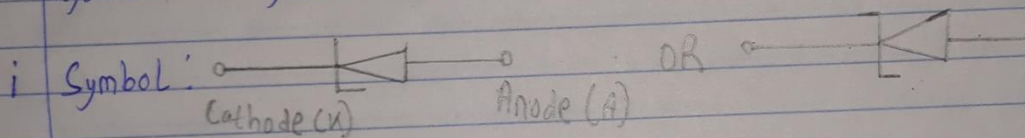 i Symbol: OR
Cathode (K) Anode (A)